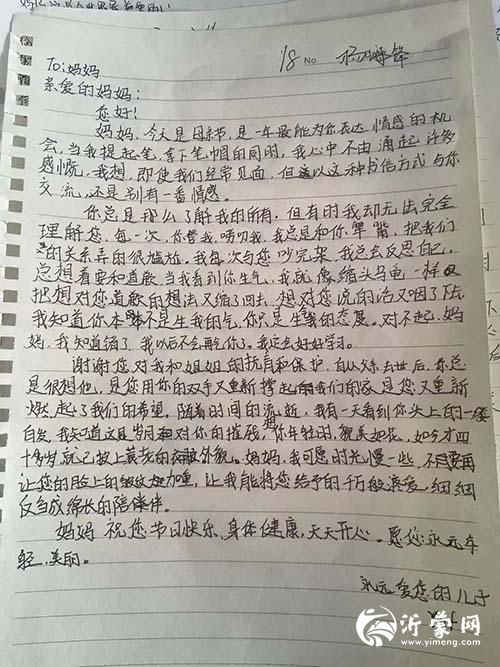 18 No.
To:妈妈
亲爱的妈妈:
您好!
妈妈,今天是母亲节,是一年最能为你表达情感的机
会,当我提起笔,拿下笔帽的同时,我心中不由涌起许多
感慨,我想,即使我们经常见面,但以这种书信方式与你
交流,还是别有一番情感。
你总是那么了解我的所有,但有时我却无法完全
理解您,每一次,你管我,唠叨我,我总是和你犟背,把我们
的关系弄的很尴尬。我每次与您吵完架,我总会反思自己,
总想着要和道歉,当我看到你生气,我就像缩头乌龟一样又
把想对您道歉的想法又缩了回去,想对您说的话又咽了下去。
我知道你本不是生我的气,你只是生我的态度。对不起,妈
妈,我知道错了,我以后不会再惹你了。我一定会好好学习。
谢谢您对我和姐姐的抚育和保护,自从父亲去世后,你总
是很想他,是您用你的双手又重新撑起我们的家,是您又重新
燃起了我们的希望,随着时间的流逝,我有一天看到你头上的一缕
白发,我知道这是岁月对你的摧残,你年轻时,貌美如花,如今才四
十多岁,就已披上黄的外貌。妈妈,我可愿时光慢一些,不要再
让您的脸上的皱纹加重,让我能将您给予的千万般深爱,细细
反刍成绵长的陪伴。
妈妈 祝您节日快乐,身体健康,天天开心。愿您永远年
轻,美丽。
永远爱您的儿子
沂蒙网
www.yimeng.com